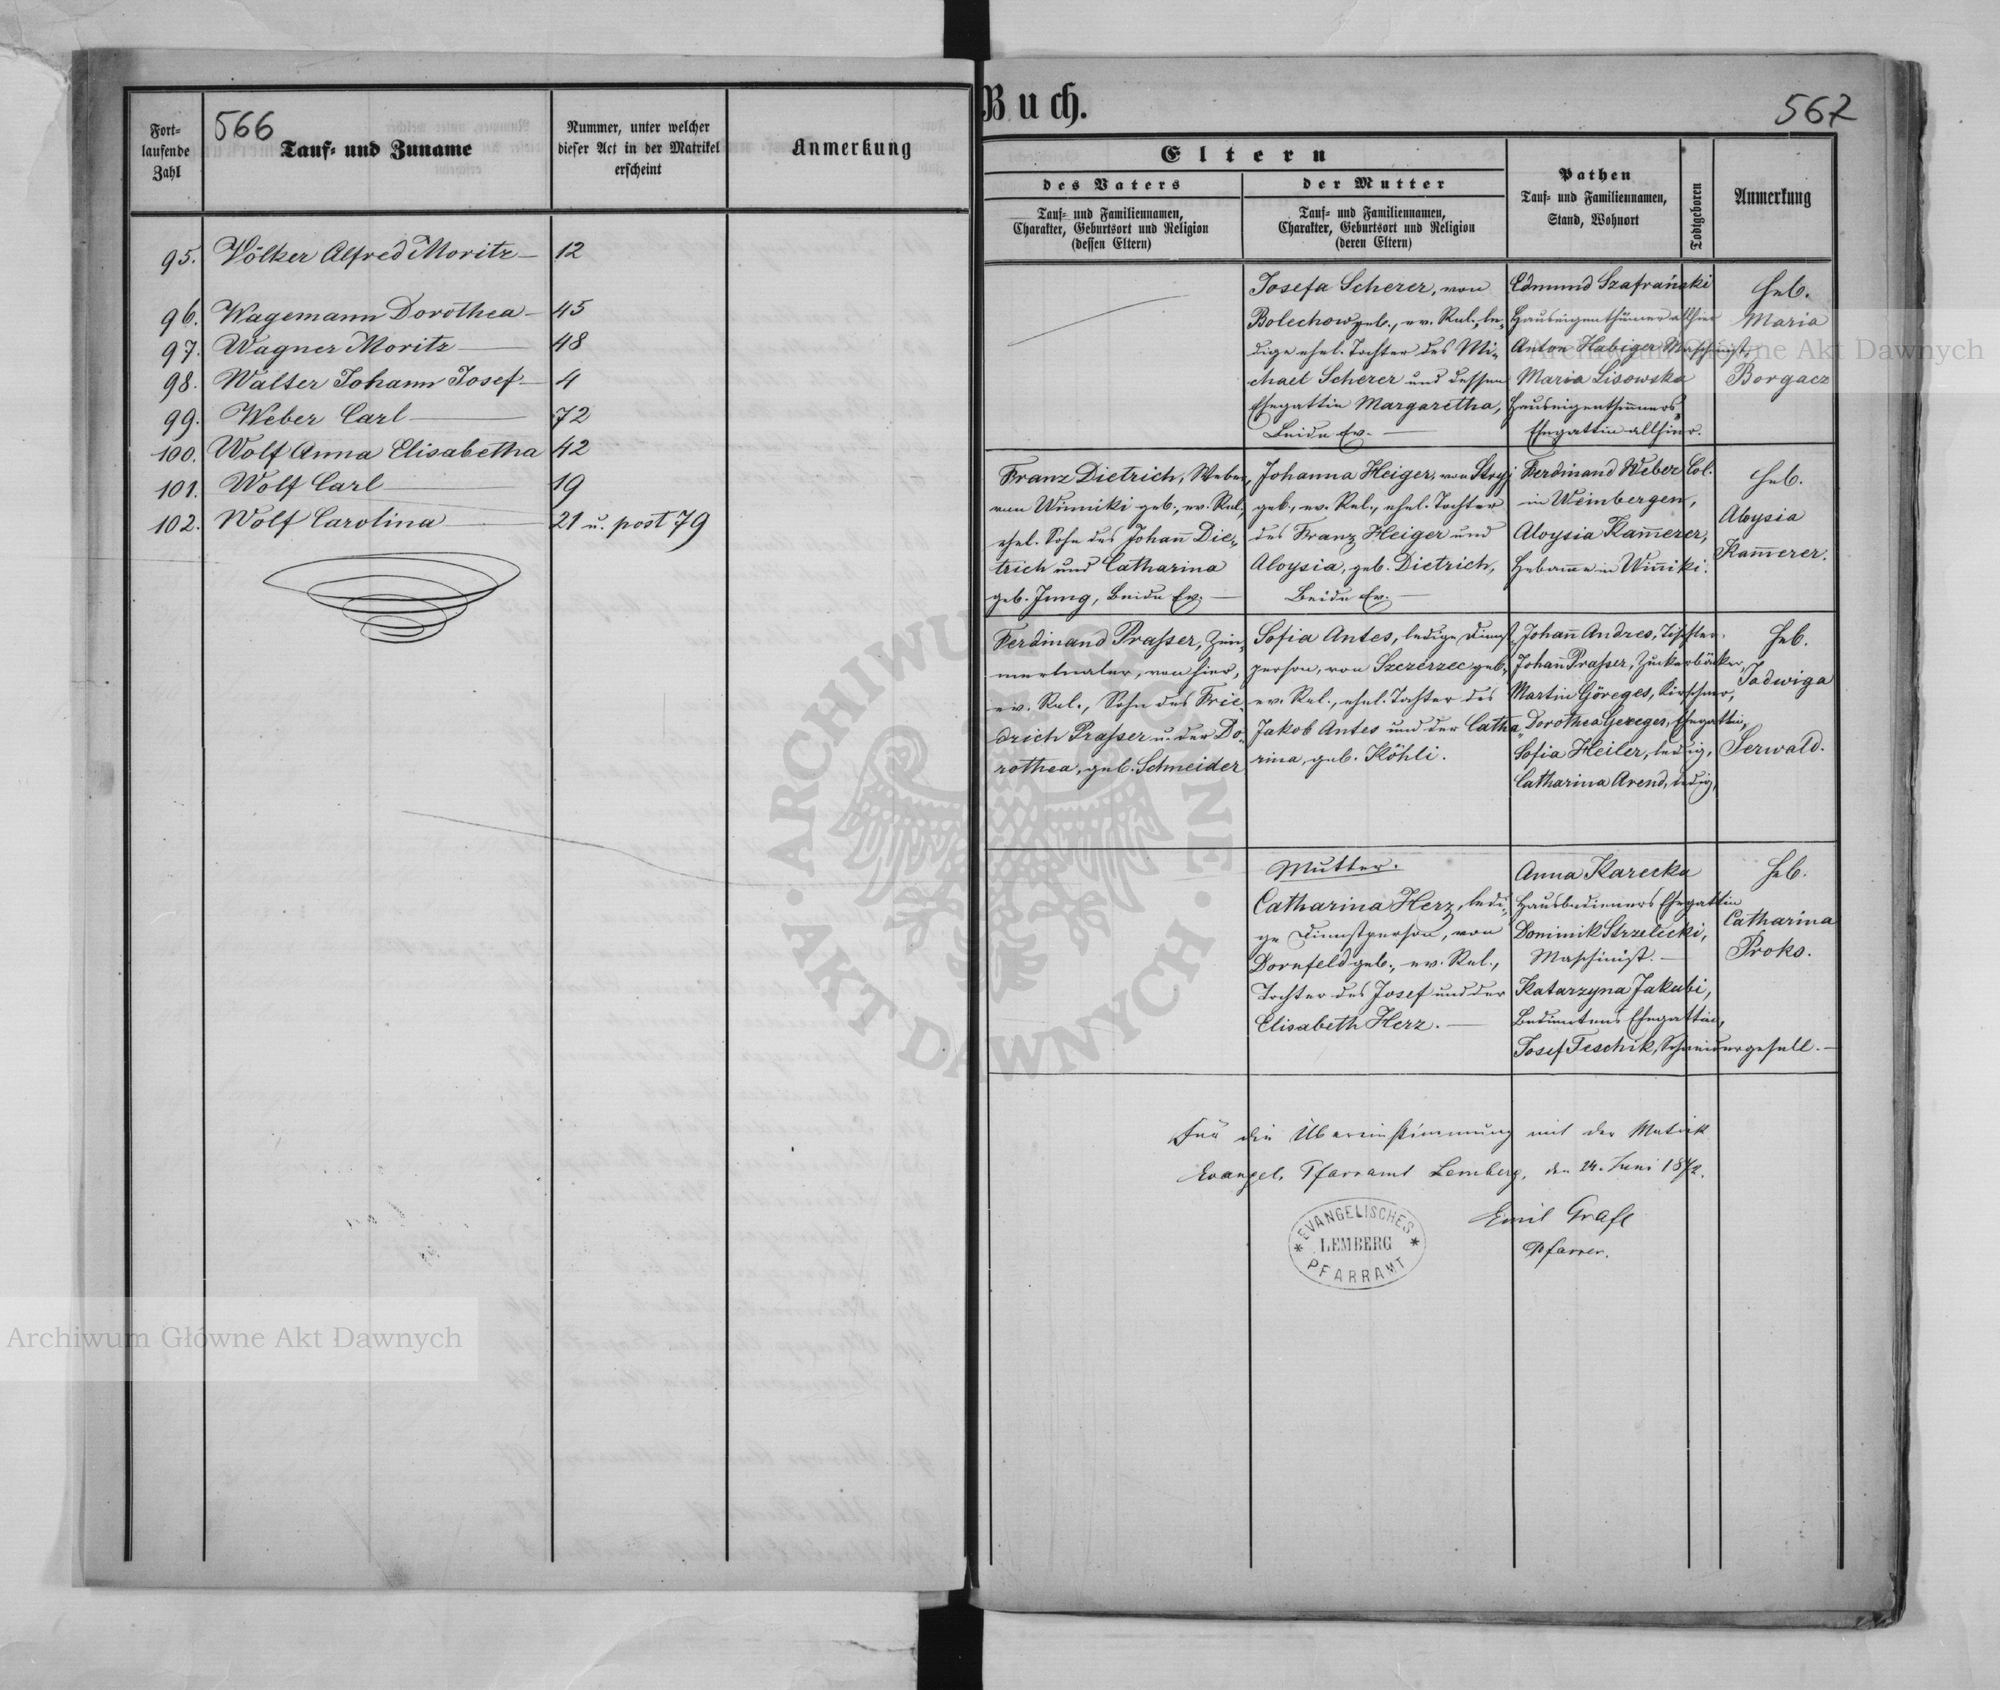 566
Fort-
laufende
Zahl
Tauf- und Zuname
Nummer, unter welcher
dieser Act in der Matrikel
erscheint
Anmerkung
95. Völker Alfred Moritz — 12
96. Wagemann Dorothea — 45
97. Wagner Moritz — 48
98. Walter Johann Josef — 4
99. Weber Carl — 72
100. Wolf Anna Elisabetha 42
101. Wolf Carl — 19
102. Wolf Carolina — 21 u. post 79
Buch.
567
Eltern
des Vaters
Tauf- und Familiennamen,
Charakter, Geburtsort und Religion
(dessen Eltern)
der Mutter
Tauf- und Familiennamen,
Charakter, Geburtsort und Religion
(deren Eltern)
Pathen
Tauf- und Familiennamen,
Stand, Wohnort
Todtgeboren
Anmerkung
Josefa Scherer, von
Bolechow geb., ev. Rel., le-
dige ehel. Tochter des Mi-
chael Scherer und dessen
Ehegattin Margaretha,
Beide Ev. —
Edmund Szafrański
Hauseigenthümer allhier
Anton Habiger Maschinist,
Maria Lisowska
Hauseigenthümers
Ehegattin allhier.
Heb.
Maria
Borgacz
Franz Dietrich, Weber,
von Winniki geb., ev. Rel.,
ehel. Sohn des Johann Die-
trich und Catharina
geb. Jung, Beide Ev. —
Johanna Heiger, von Stryj
geb., ev. Rel., ehel. Tochter
des Franz Heiger und
Aloysia, geb. Dietrich,
Beide Ev. —
Ferdinand Weber Col.
in Weinbergen,
Aloysia Kam̄erer,
Hebam̄e in Win̄iki.
Heb.
Aloysia
Kam̄erer.
Ferdinand Prasser, Zim-
mermaler, von hier,
ev. Rel., Sohn des Frie-
drich Prasser u. der Do-
rothea, geb. Schneider
Sofia Antes, ledige Dienst-
person, von Szczerzec geb.,
ev. Rel., ehel. Tochter des
Jakob Antes und der Catha-
rina, geb. Köhli.
Johan̄ Andres, Tischler.
Johan̄ Prasser, Zuckerbäcker,
Martin Göreges, Kirschner,
Dorothea Gereges, Ehegattin,
Sofia Heiler, ledig,
Catharina Arend, ledig,
Heb.
Jadwiga
Serwald.
Mutter.
Catharina Herz, ledi-
ge Dienstperson, von
Dornfeld geb., ev. Rel.,
Tochter des Josef und der
Elisabeth Herz. —
Anna Karecka
Hausbedieners Ehegattin
Dominik Strzelicki,
Maschinist. —
Katarzyna Jakubi,
Bedientens Ehegattin,
Josef Teschik, Schneidergesell. —
Heb.
Catharina
Proks.
Für die Übereinstimmung mit der Matrik
Evangel. Pfarramt Lemberg, den 24. Juni 1872.
Emil Grafl
Pfarrer.
EVANGELISCHES
LEMBERG
PFARRAMT
ARCHIWUM GŁÓWNE AKT DAWNYCH
Archiwum Główne Akt Dawnych
Archiwum Główne Akt Dawnych